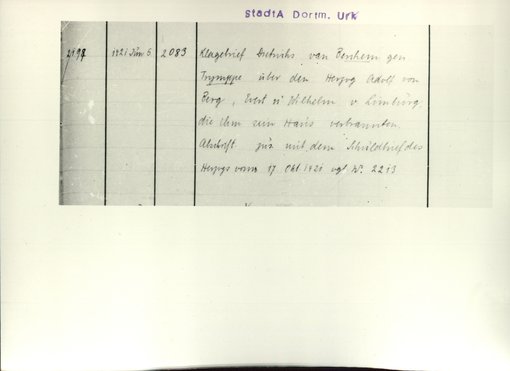 StadtA Dortm. Urk
2197 1421 Nov 6. 2083 Klagebrief Dietrichs van Benhem gen
Trymppe über den Herzog Adolf von
Berg, Evert u Wilhelm v Limburg
die ihm sein Haus verbrannten.
Abschrift zus mit dem Schuldbrief des
Herzogs vom 17 Okt 1421 vgl Nr. 2213